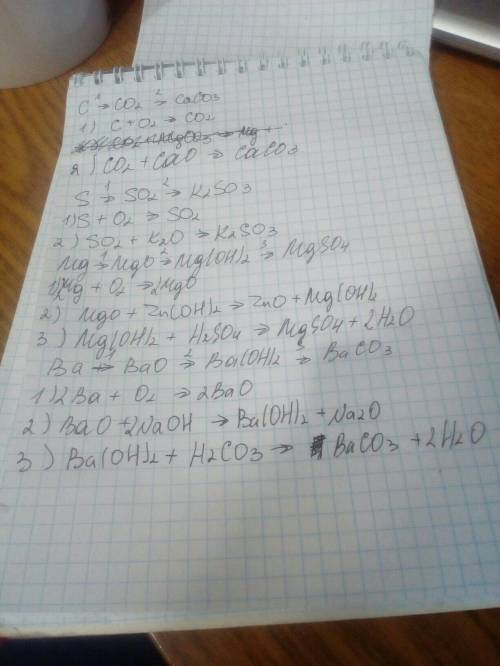 C →¹ CO₂ →² CaCO₃
1) C + O₂ → CO₂
2) CO₂ + CaO → CaCO₃
S →¹ SO₂ →² K₂SO₃
1) S + O₂ → SO₂
2) SO₂ + K₂O → K₂SO₃
Mg →¹ MgO →² Mg(OH)₂ →³ MgSO₄
1) 2Mg + O₂ → 2MgO
2) MgO + Zn(OH)₂ → ZnO + Mg(OH)₂
3) Mg(OH)₂ + H₂SO₄ → MgSO₄ + 2H₂O
Ba →¹ BaO →² Ba(OH)₂ →³ BaCO₃
1) 2Ba + O₂ → 2BaO
2) BaO + 2NaOH → Ba(OH)₂ + Na₂O
3) Ba(OH)₂ + H₂CO₃ → BaCO₃ + 2H₂O